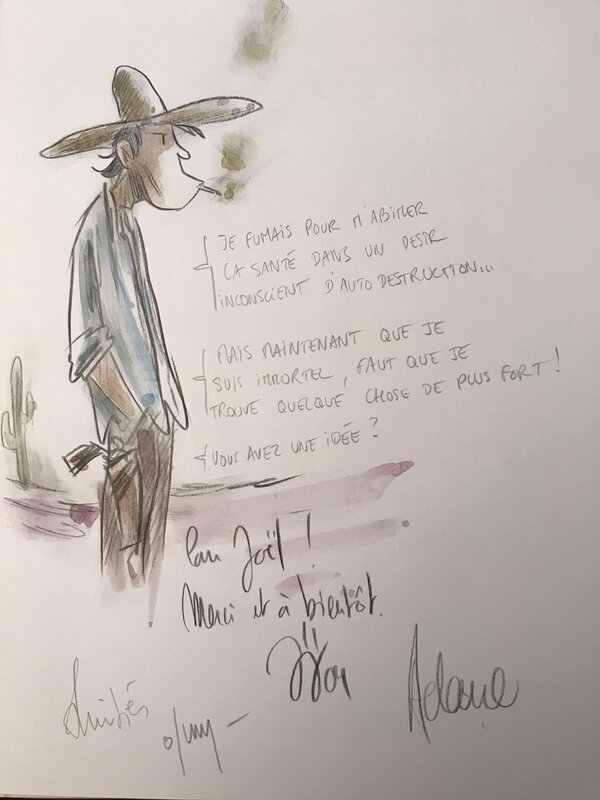 JE FUMAIS POUR M'ABIMER
ÇA SANTÉ DANS UN DESIR
INCONSCIENT D'AUTO DESTRUCTION...
MAIS MAINTENANT QUE JE
SUIS IMMORTEL, FAUT QUE JE
TROUVE QUELQUE CHOSE DE PLUS FORT !
VOUS AVEZ UNE IDÉE ?
Pour Joël !
Merci et à bientôt.
Amitiés